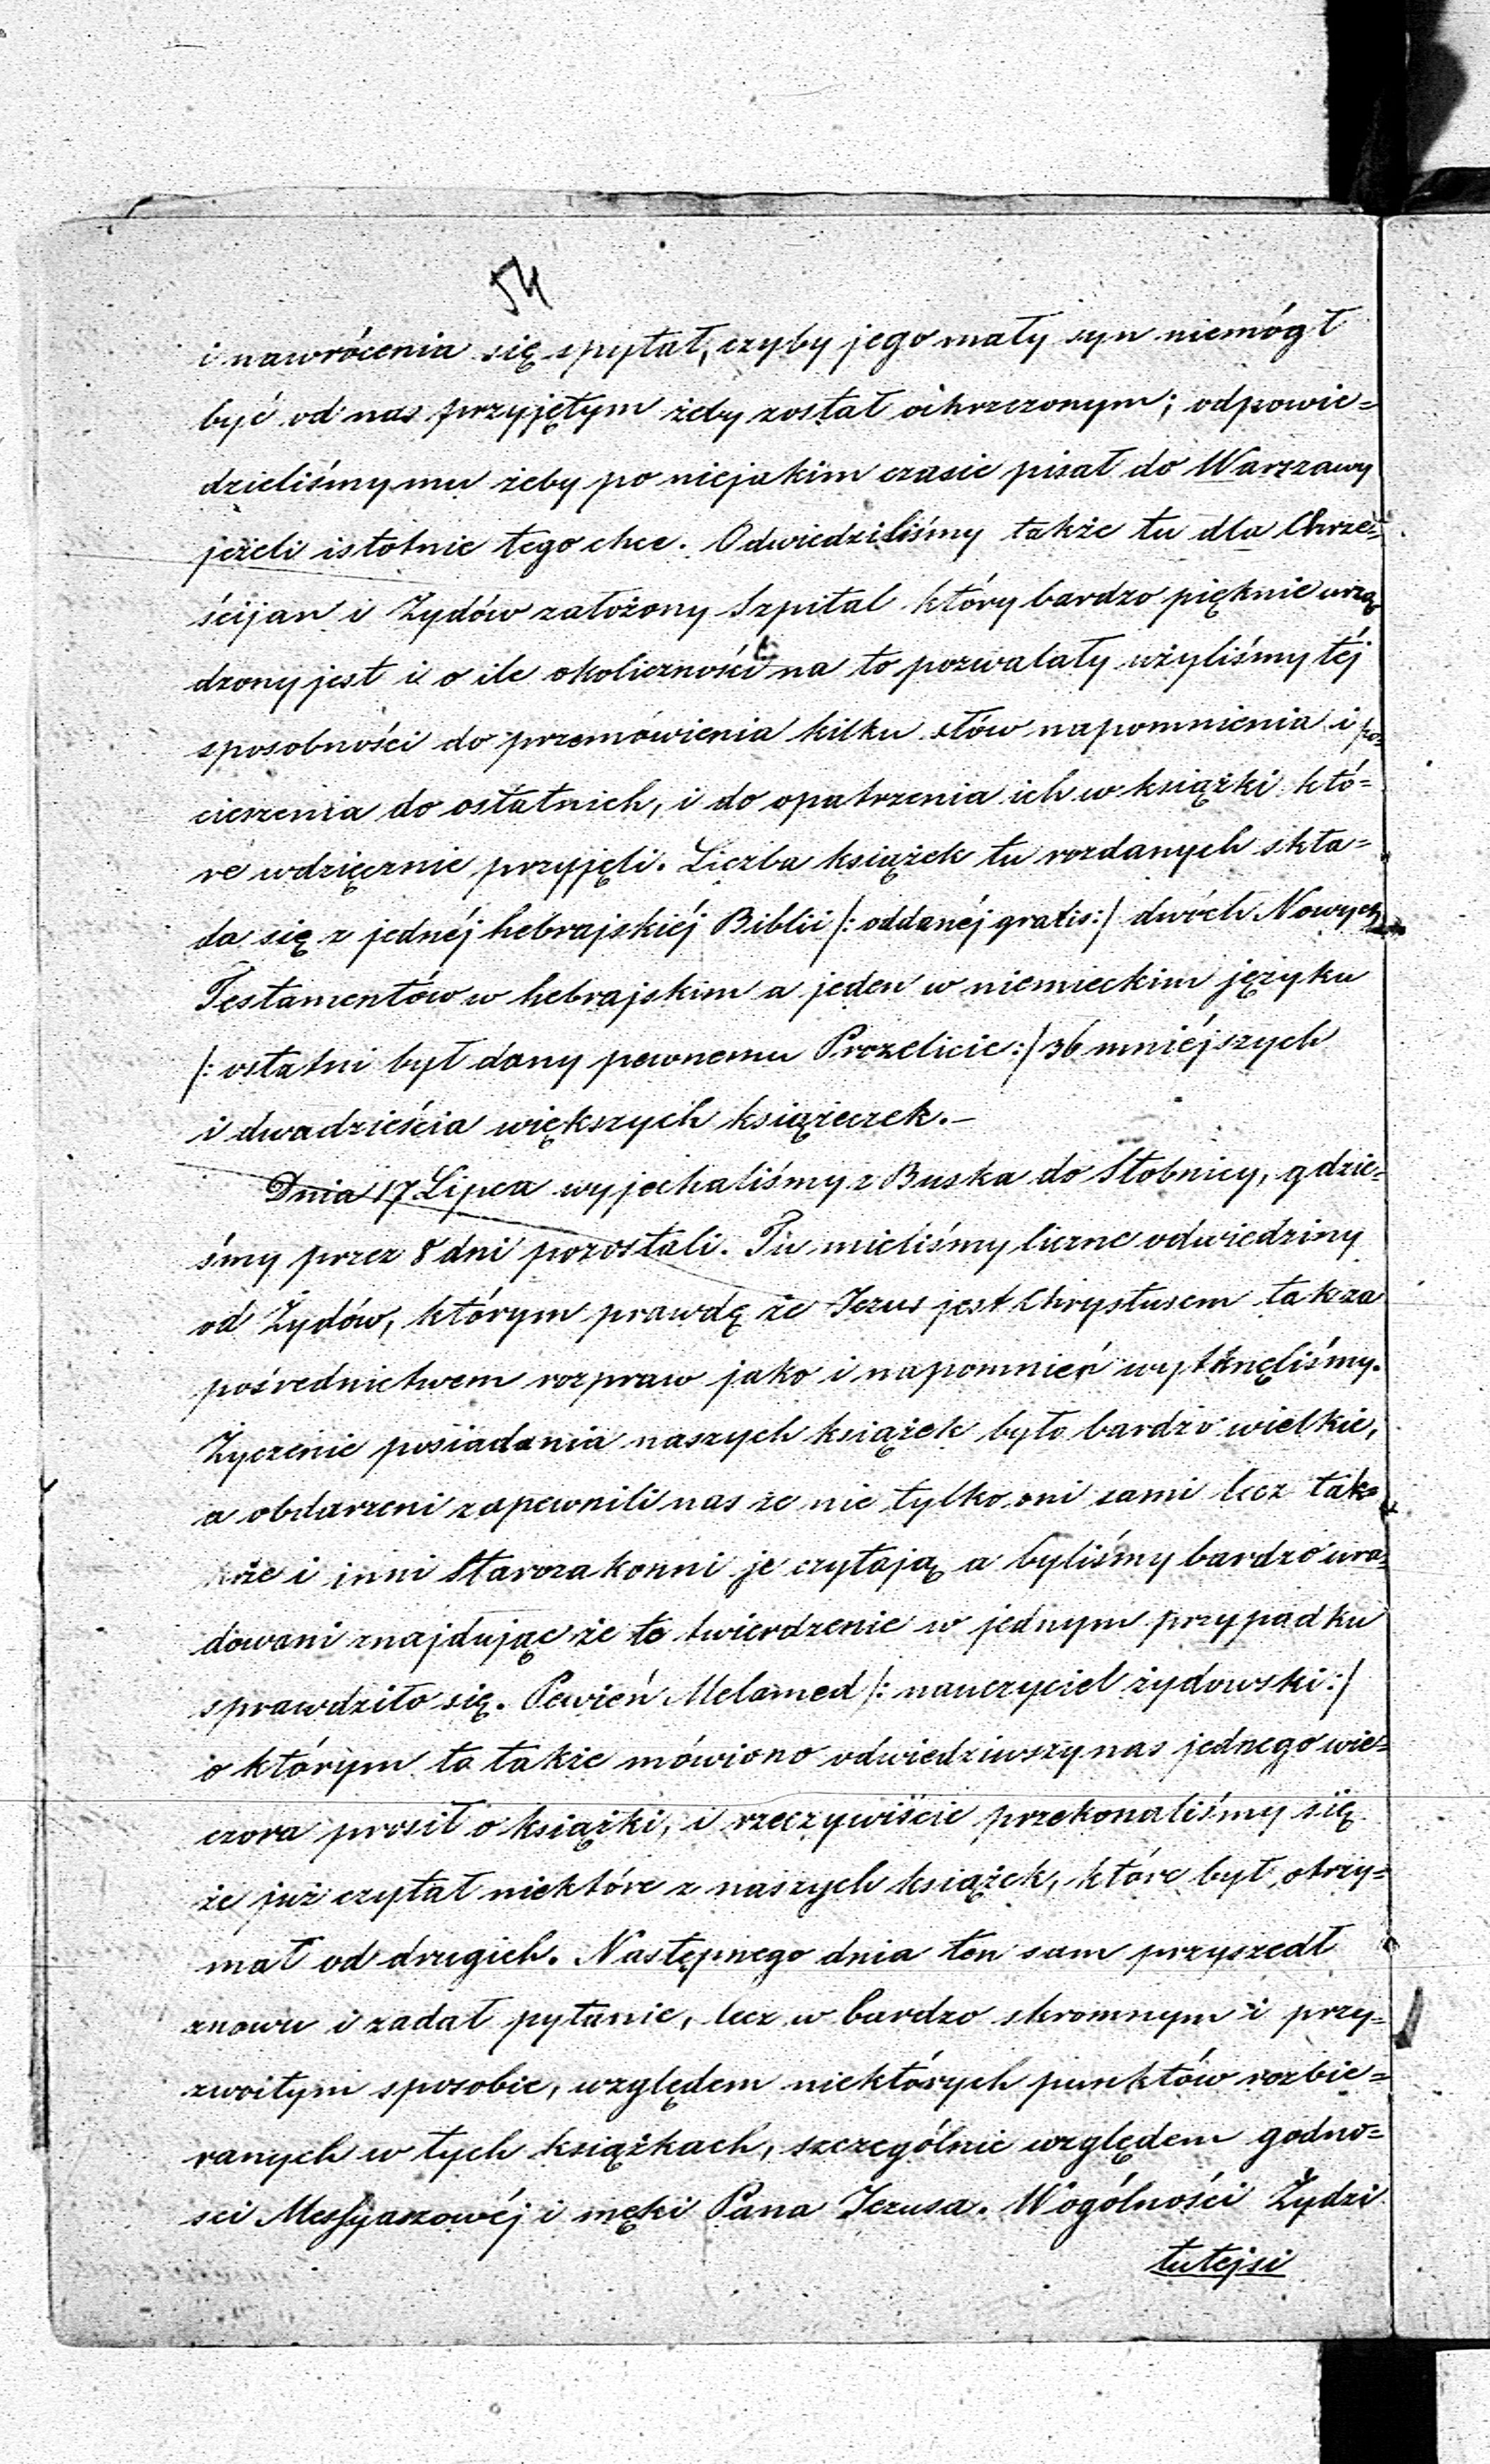 54
i nawrócenia się spytał, czyby jego mały syn niemógł
być od nas przyjętym żeby został ochrzczonym; odpowie=
dzieliśmy mu żeby po niejakim czasie pisał do Warszawy
jeżeli istotnie tego chce. Odwiedziliśmy także tu dla Chrze=
ścijan i Żydów założony Szpital który bardzo pięknie urzą
dzony jest i o ile okoliczności na to pozwalały użyliśmy téj
sposobności do przemówienia kilku słów napomnienia i po=
cieszenia do ostatnich, i do opatrzenia ich w książki któ=
re wdzięcznie przyjęli. Liczba książek tu rozdanych skła=
da się z jednéj hebrajskiéj Biblii /: oddanéj gratis:/ dwóch Nowych
Testamentów w hebrajskim a jeden w niemieckim języku
/: ostatni był dany pewnemu Prozelicie:/ 36 mniéjszych
i dwadzieścia większych książeczek.–
Dnia 17 Lipca wyjechaliśmy z Buska do Stobnicy, gdzie=
śmy przez 8 dni pozostali. Tu mieliśmy liczne odwiedziny
od Żydów, którym prawdę że Jezus jest Chrystusem tak za
pośrednictwem rozpraw jako i napomnień wytknęliśmy.
Życzenie posiadania naszych książek było bardzo wielkie,
a obdarzeni zapewnili nas że nie tylko oni sami lecz tak=
że i inni Starozakonni je czytają a byliśmy bardzo ura=
dowani znajdując że to twierdzenie w jednym przypadku
sprawdziło się. Pewień Melamed /: nauczyciel żydowski:/
o którym to także mówiono odwiedziwszy nas jednego wie=
czora prosił o książki, i rzeczywiście przekonaliśmy się
że już czytał niektóre z naszych książek, które był otrzy=
mał od drugich. Następnego dnia ten sam przyszedł
znowu i zadał pytanie, lecz w bardzo skromnym i przy=
zwoitym sposobie, względem niektórych punktów rozbie=
ranych w tych książkach, szczególnie względem godno=
sci Messyaszowéj i męki Pana Jezusa. Wogólności Żydzi
tutejsi